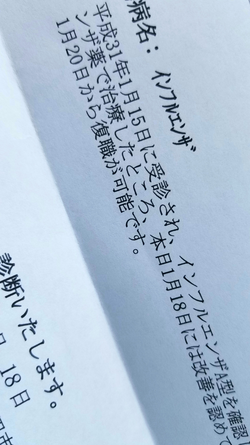 病名： インフルエンザ
インフルエンザA型を確認し
平成31年1月15日に受診され、本日1月18日には改善を認めて
ンザ薬で治療したところ、
1月20日から復職が可能です。
診断いたします。
18日